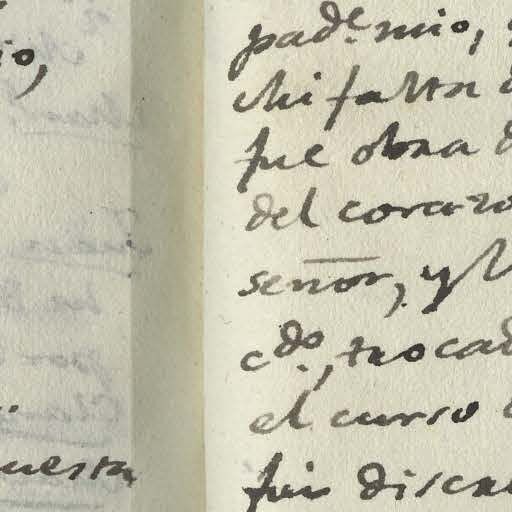 io,
uesta
pad.e mio,
chifalta
fue obra d
del corazo
señor, y
cdo., trocad
el curso
fui discu